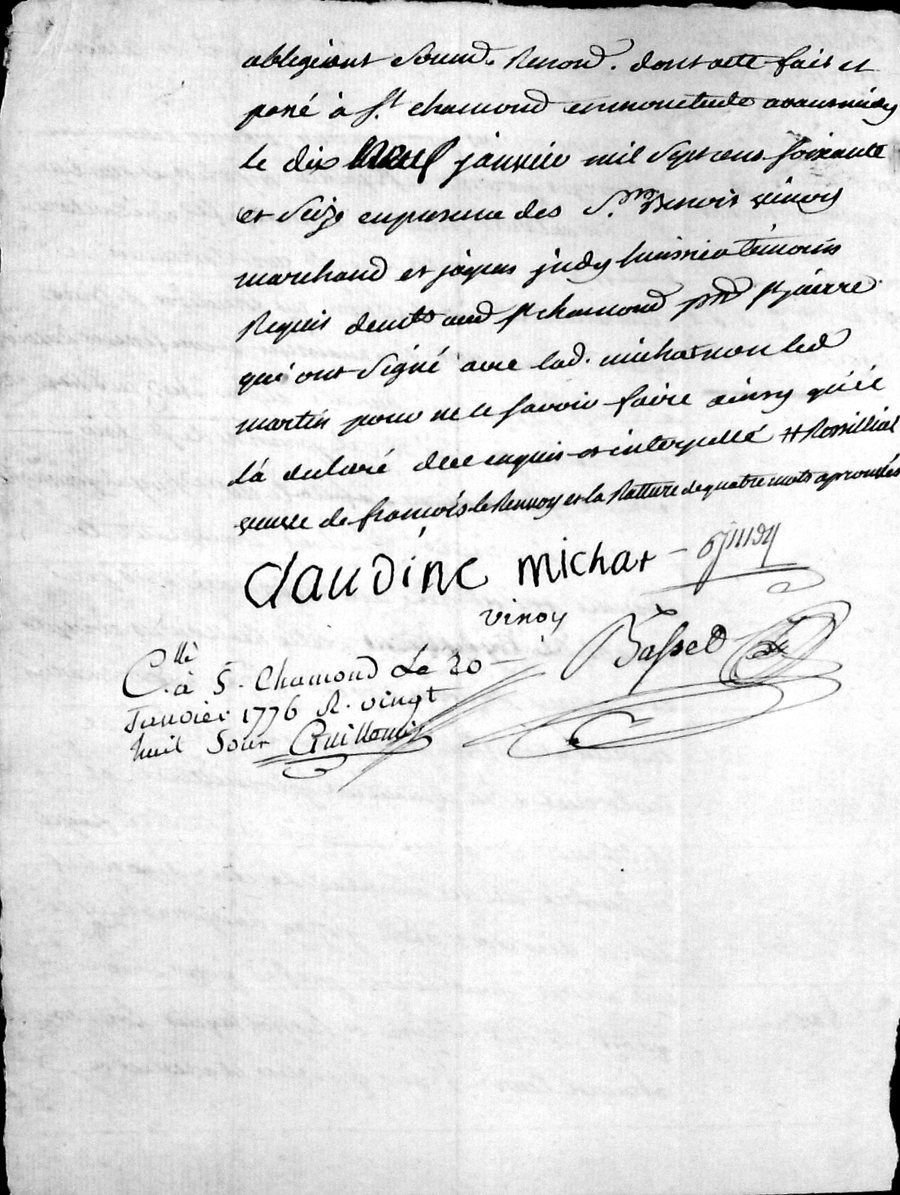 obligeant Soum. Renon. dont acte fait et
passé à St. chamond en mon étude avant midy
le dix neuf janvier mil Sept cens Soixante
et Seize en presence des Srs. Benoit vinoy
marchand et jaques judy huissier témoins
Requis demts. aud. St chamond psse. St pierre.
qui ont Signé avec lad. michat non led
martin pour ne le Savoir faire ainsy qu'il
l'a declaré de ce enquis et interpellé #
veuve de françois le Renvoy et la Ratture de quatre mots aprouvés
Claudine michat – judy
vinoy
Basset
C.llé à S. Chamond Le 20
Janvier 1776 R. vingt
huit Sour